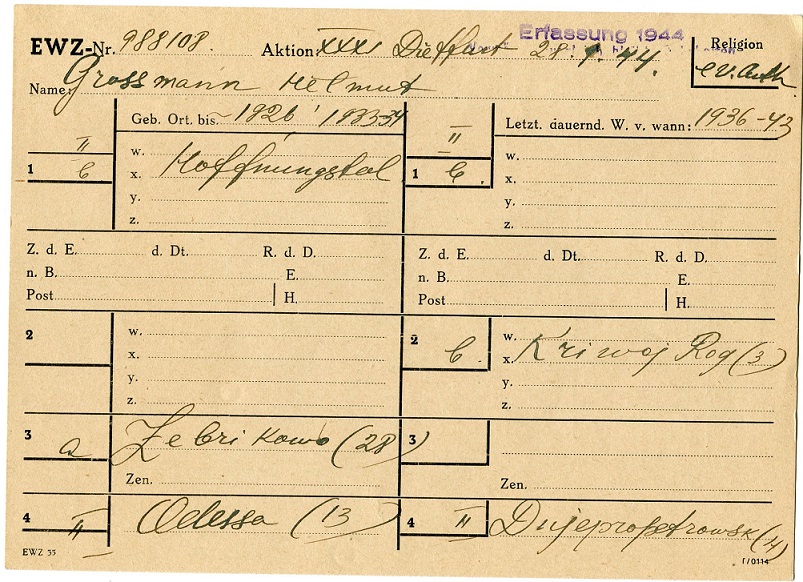 Erfassung 1944
EWZ-Nr. 988108. Aktion: XXXI 28. 44. Religion
Name: Grossmann Helmut ev. luth.
Geb. Ort. bis. 1926, 1933-34 Letzt. dauernd. W. v. wann: 1936-43
II II
1 b 1 b.
w. w.
x. Hoffnungstal x.
y. y.
z. z.
Z. d. E. d. Dt. R. d. D. Z. d. E. d. Dt. R. d. D.
n. B. E. n. B. E.
Post H. Post H.
2 w. 2 b. w.
x. x. Kriwoj Rog (3)
y. y.
z. z.
3 a Zebrikowo (28) 3
Zen. Zen.
4 II Odessa (13) 4 II Dnjepropetrowsk
EWZ 55 I/0114